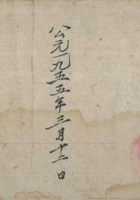 公元一九五五年三月十二日